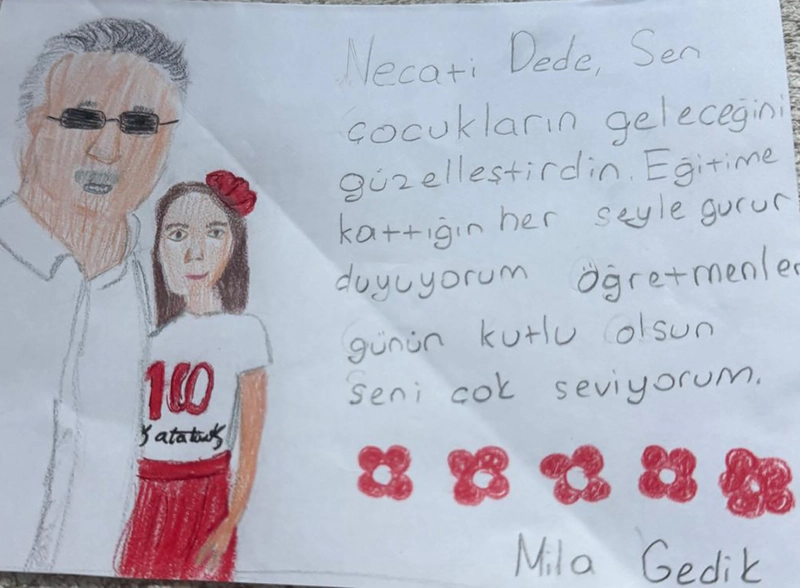 Necati Dede, Sen
çocukların geleceğini
güzelleştirdin. Eğitime
kattığın her seyle gurur
duyuyorum öğretmenler
günün kutlu olsun
seni çok seviyorum.
Mila Gedik
100
K atatürk